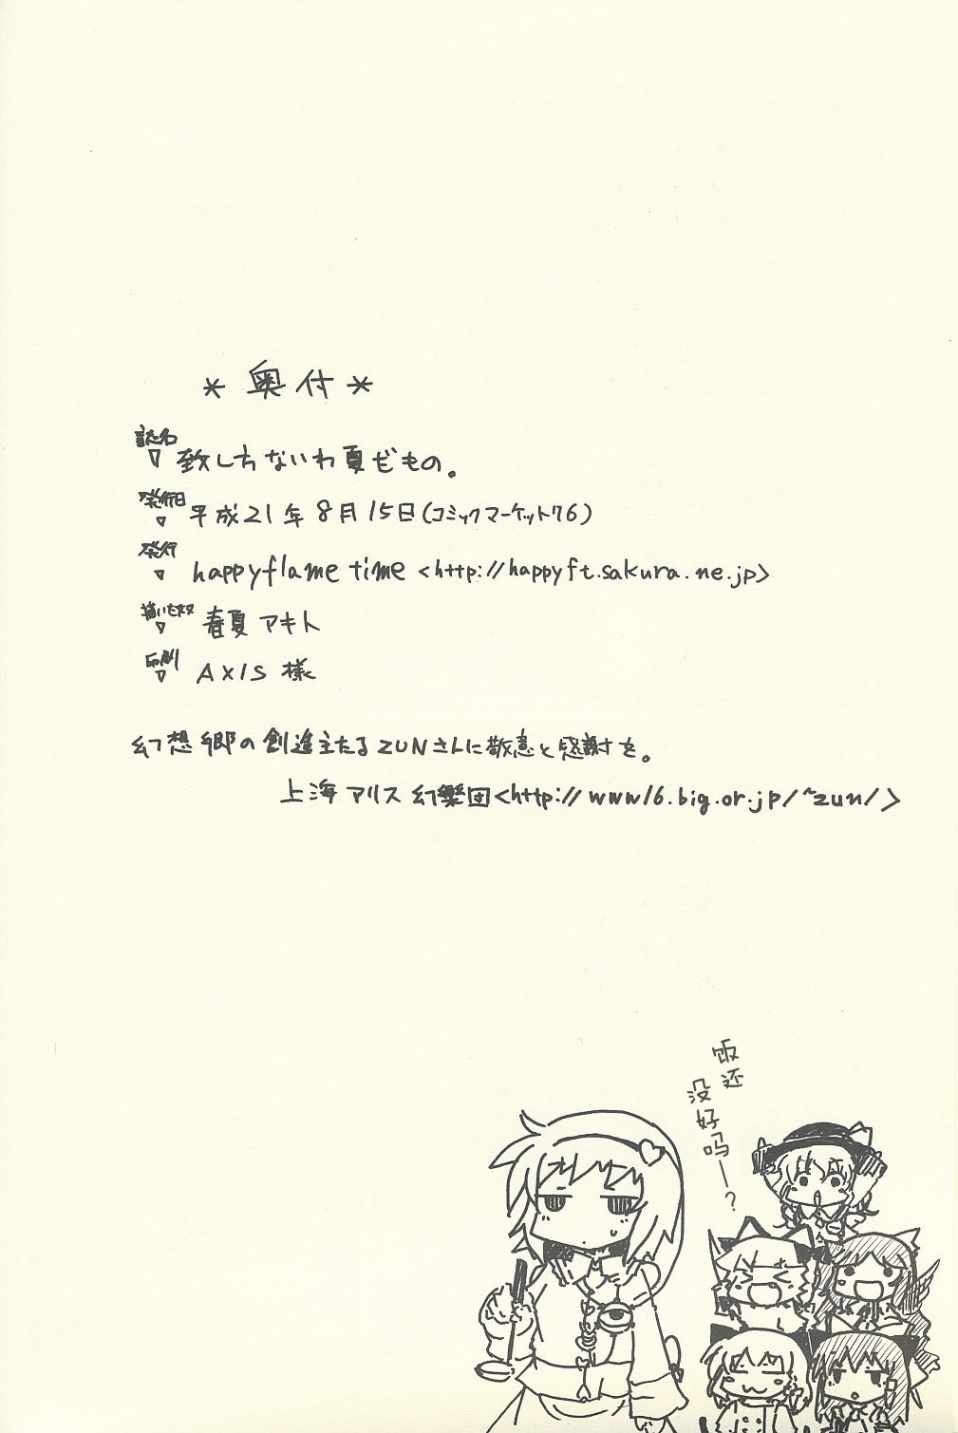 ＊奥付＊
誌名
▽ 致し方ないわ夏だもの。
発行日
▽ 平成21年8月15日(コミックマーケット76)
発行
▽ happyflame time <http://happyft.sakura.ne.jp>
▽ 春夏アキト
印刷
▽ AXIS 様
幻想郷の創造主たるZUNさんに敬意と感謝を。
上海アリス幻樂団<http://www16.big.or.jp/~zun/>
饭还
没好吗—?